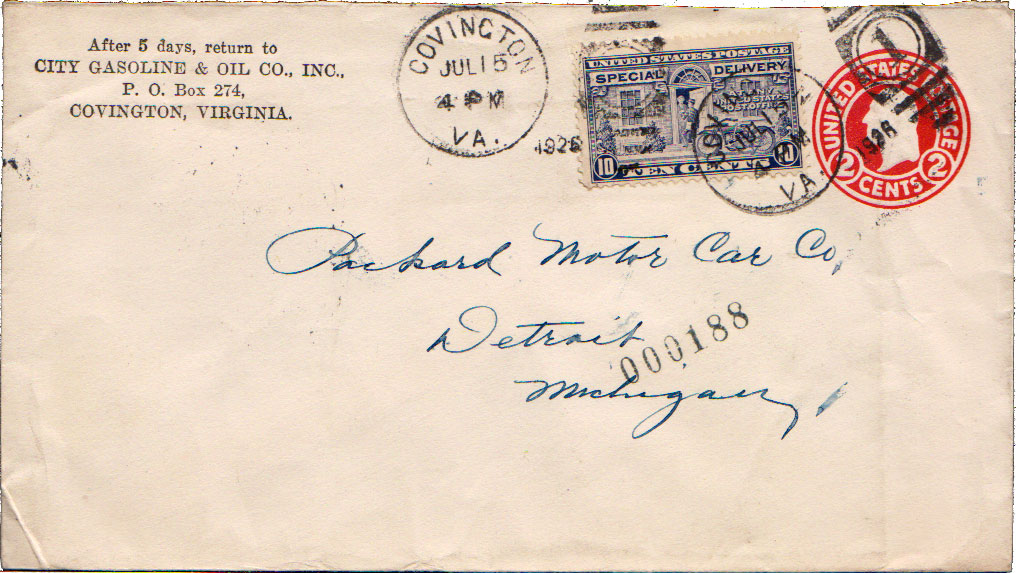 After 5 days, return to
CITY GASOLINE & OIL CO., INC.,
P. O. Box 274,
COVINGTON, VIRGINIA.
COVINGTON
JUL 15
4 PM
VA.
1926
UNITED STATES POSTAGE
SPECIAL DELIVERY
10
JUL 15
VA.
1926
1
UNITED STATES POSTAGE
2 CENTS 2
Packard Motor Car Co,
Detroit
000188
Michigan,